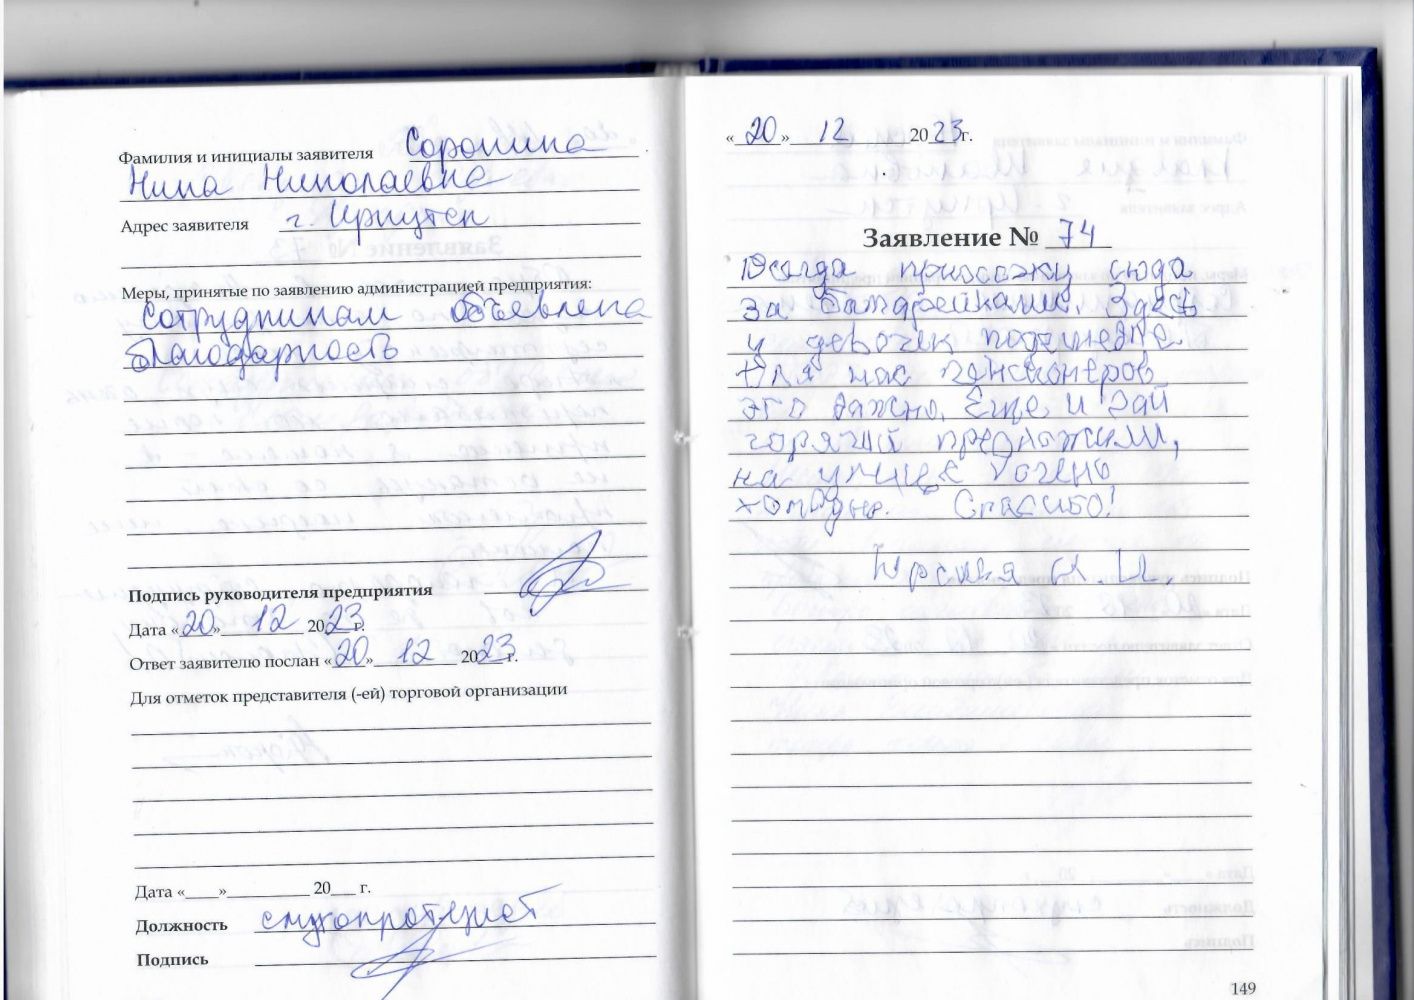 Фамилия и инициалы заявителя Соронина
Нина Николаевна
Адрес заявителя г. Иркутск
Меры, принятые по заявлению администрацией предприятия:
Сотрудникам объявлена
благодарность
Подпись руководителя предприятия
Дата «20» 12 2023г.
Ответ заявителю послан «20» 12 2023г.
Для отметок представителя (-ей) торговой организации
Дата «___»_________ 20___ г.
Должность слухопротезист
Подпись
«20» 12 2023г.
Заявление № 74
Всегда прихожу сюда
за батарейками. Здесь
у девочек
Для нас пенсионеров
это важно. Еще и чай
горячий предложили,
на улице очень
холодно. Спасибо!
Н. И.
149